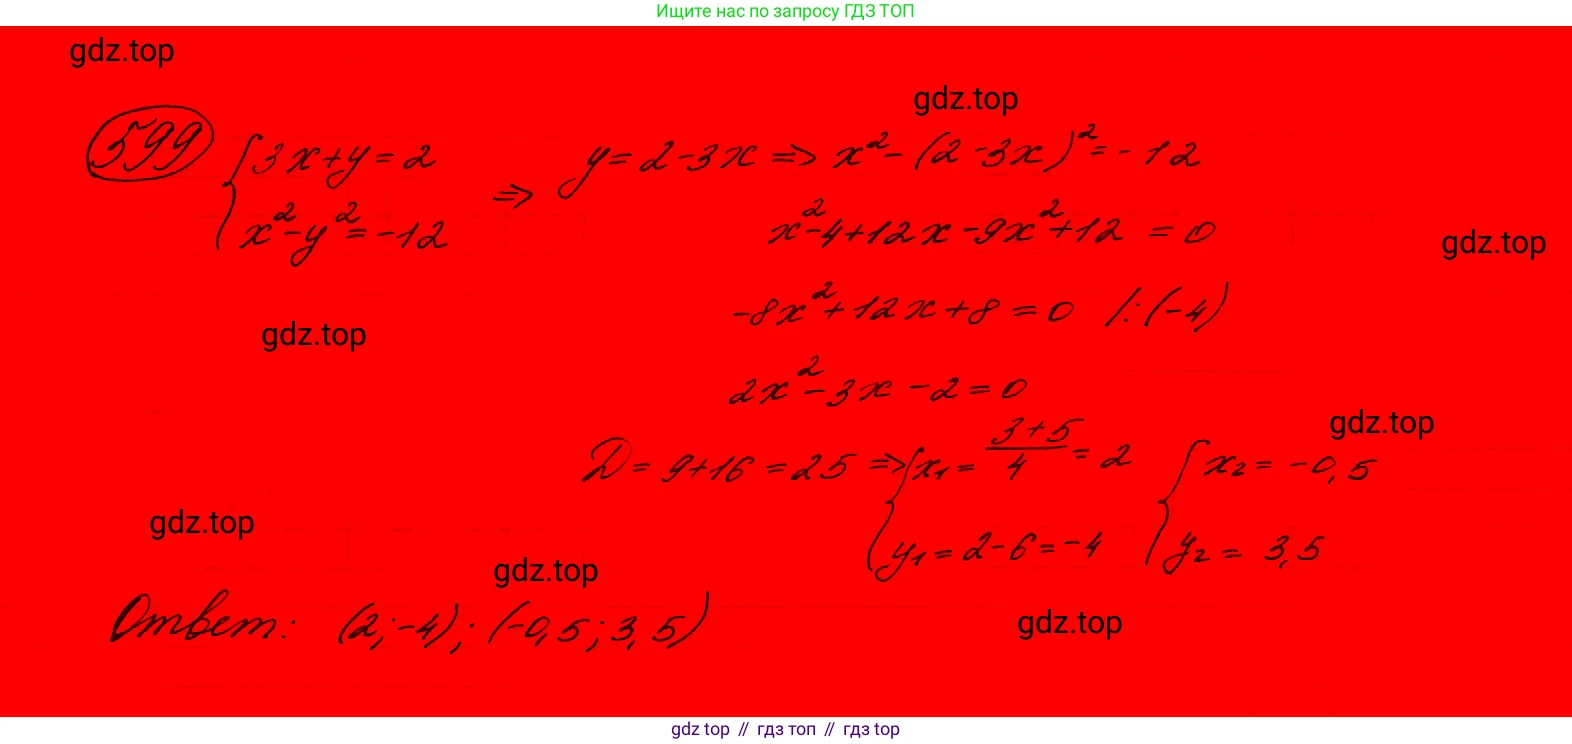 Ищите нас по запросу ГДЗ ТОП
gdz.top
gdz.top
599 { 3x+y=2 ⇒ y=2-3x ⇒ x²-(2-3x)²=-12
x²-y²=-12
x²-4+12x-9x²+12=0
gdz.top
-8x²+12x+8=0 /:(-4)
gdz.top
2x²-3x-2=0
gdz.top
D=9+16=25 ⇒ { x₁=(3+5)/4=2 { x₂=-0,5
y₁=2-6=-4 y₂=3,5
gdz.top
gdz.top
Ответ: (2;-4); (-0,5;3,5)
gdz.top
gdz.top // гдз топ // гдз top